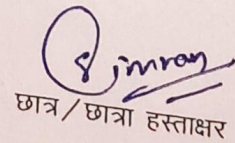 Simran
छात्र / छात्रा हस्ताक्षर